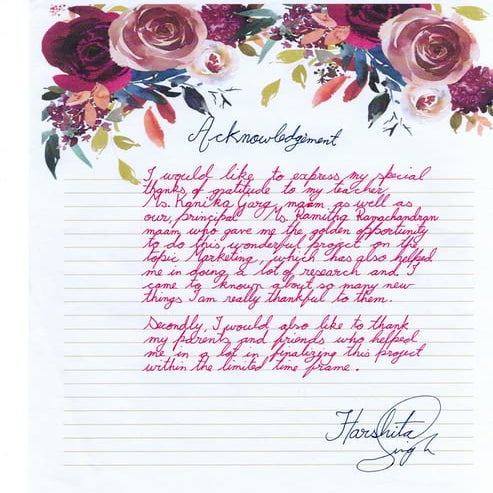 Acknowledgement
I would like to express my special
thanks of gratitude to my teacher
Ms. Kanika Garg, maam as well as
our, principal Ms. Ramitha Ramachandran
maam who gave me the golden opportunity
to do this wonderful project on the
topic Marketing, which has also helped
me in doing a lot of research and I
came to known about so many new
things I am really thankful to them.
Secondly, I would also like to thank
my parents and friends who helped
me in a lot in finalizing this project
within the limited time frame.
Harshita
Singh